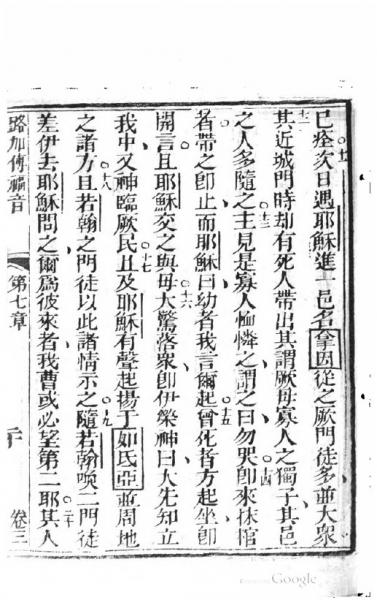 已痊次日遇耶穌進一邑名拿因從之厥門徒多並大衆
其近城門時却有死人帶出其謂厥母寡人之獨子其邑
之人多隨之主見是寡人恤憐之謂之曰勿哭卽來抹棺
者帶之卽止而耶穌曰幼者我言爾起曾死者方起坐卽
開言且耶穌交之與母大驚落衆卽伊榮神曰大先知立
我中又神臨厥民且及耶穌有聲起揚于如氐亞並周地
之諸方且若翰之門徒以此諸情示之隨若翰喚二門徒
差伊去耶穌問之爾爲彼來者我曹或必望第二耶其人
路加傳福音
第七章
卷三
Google